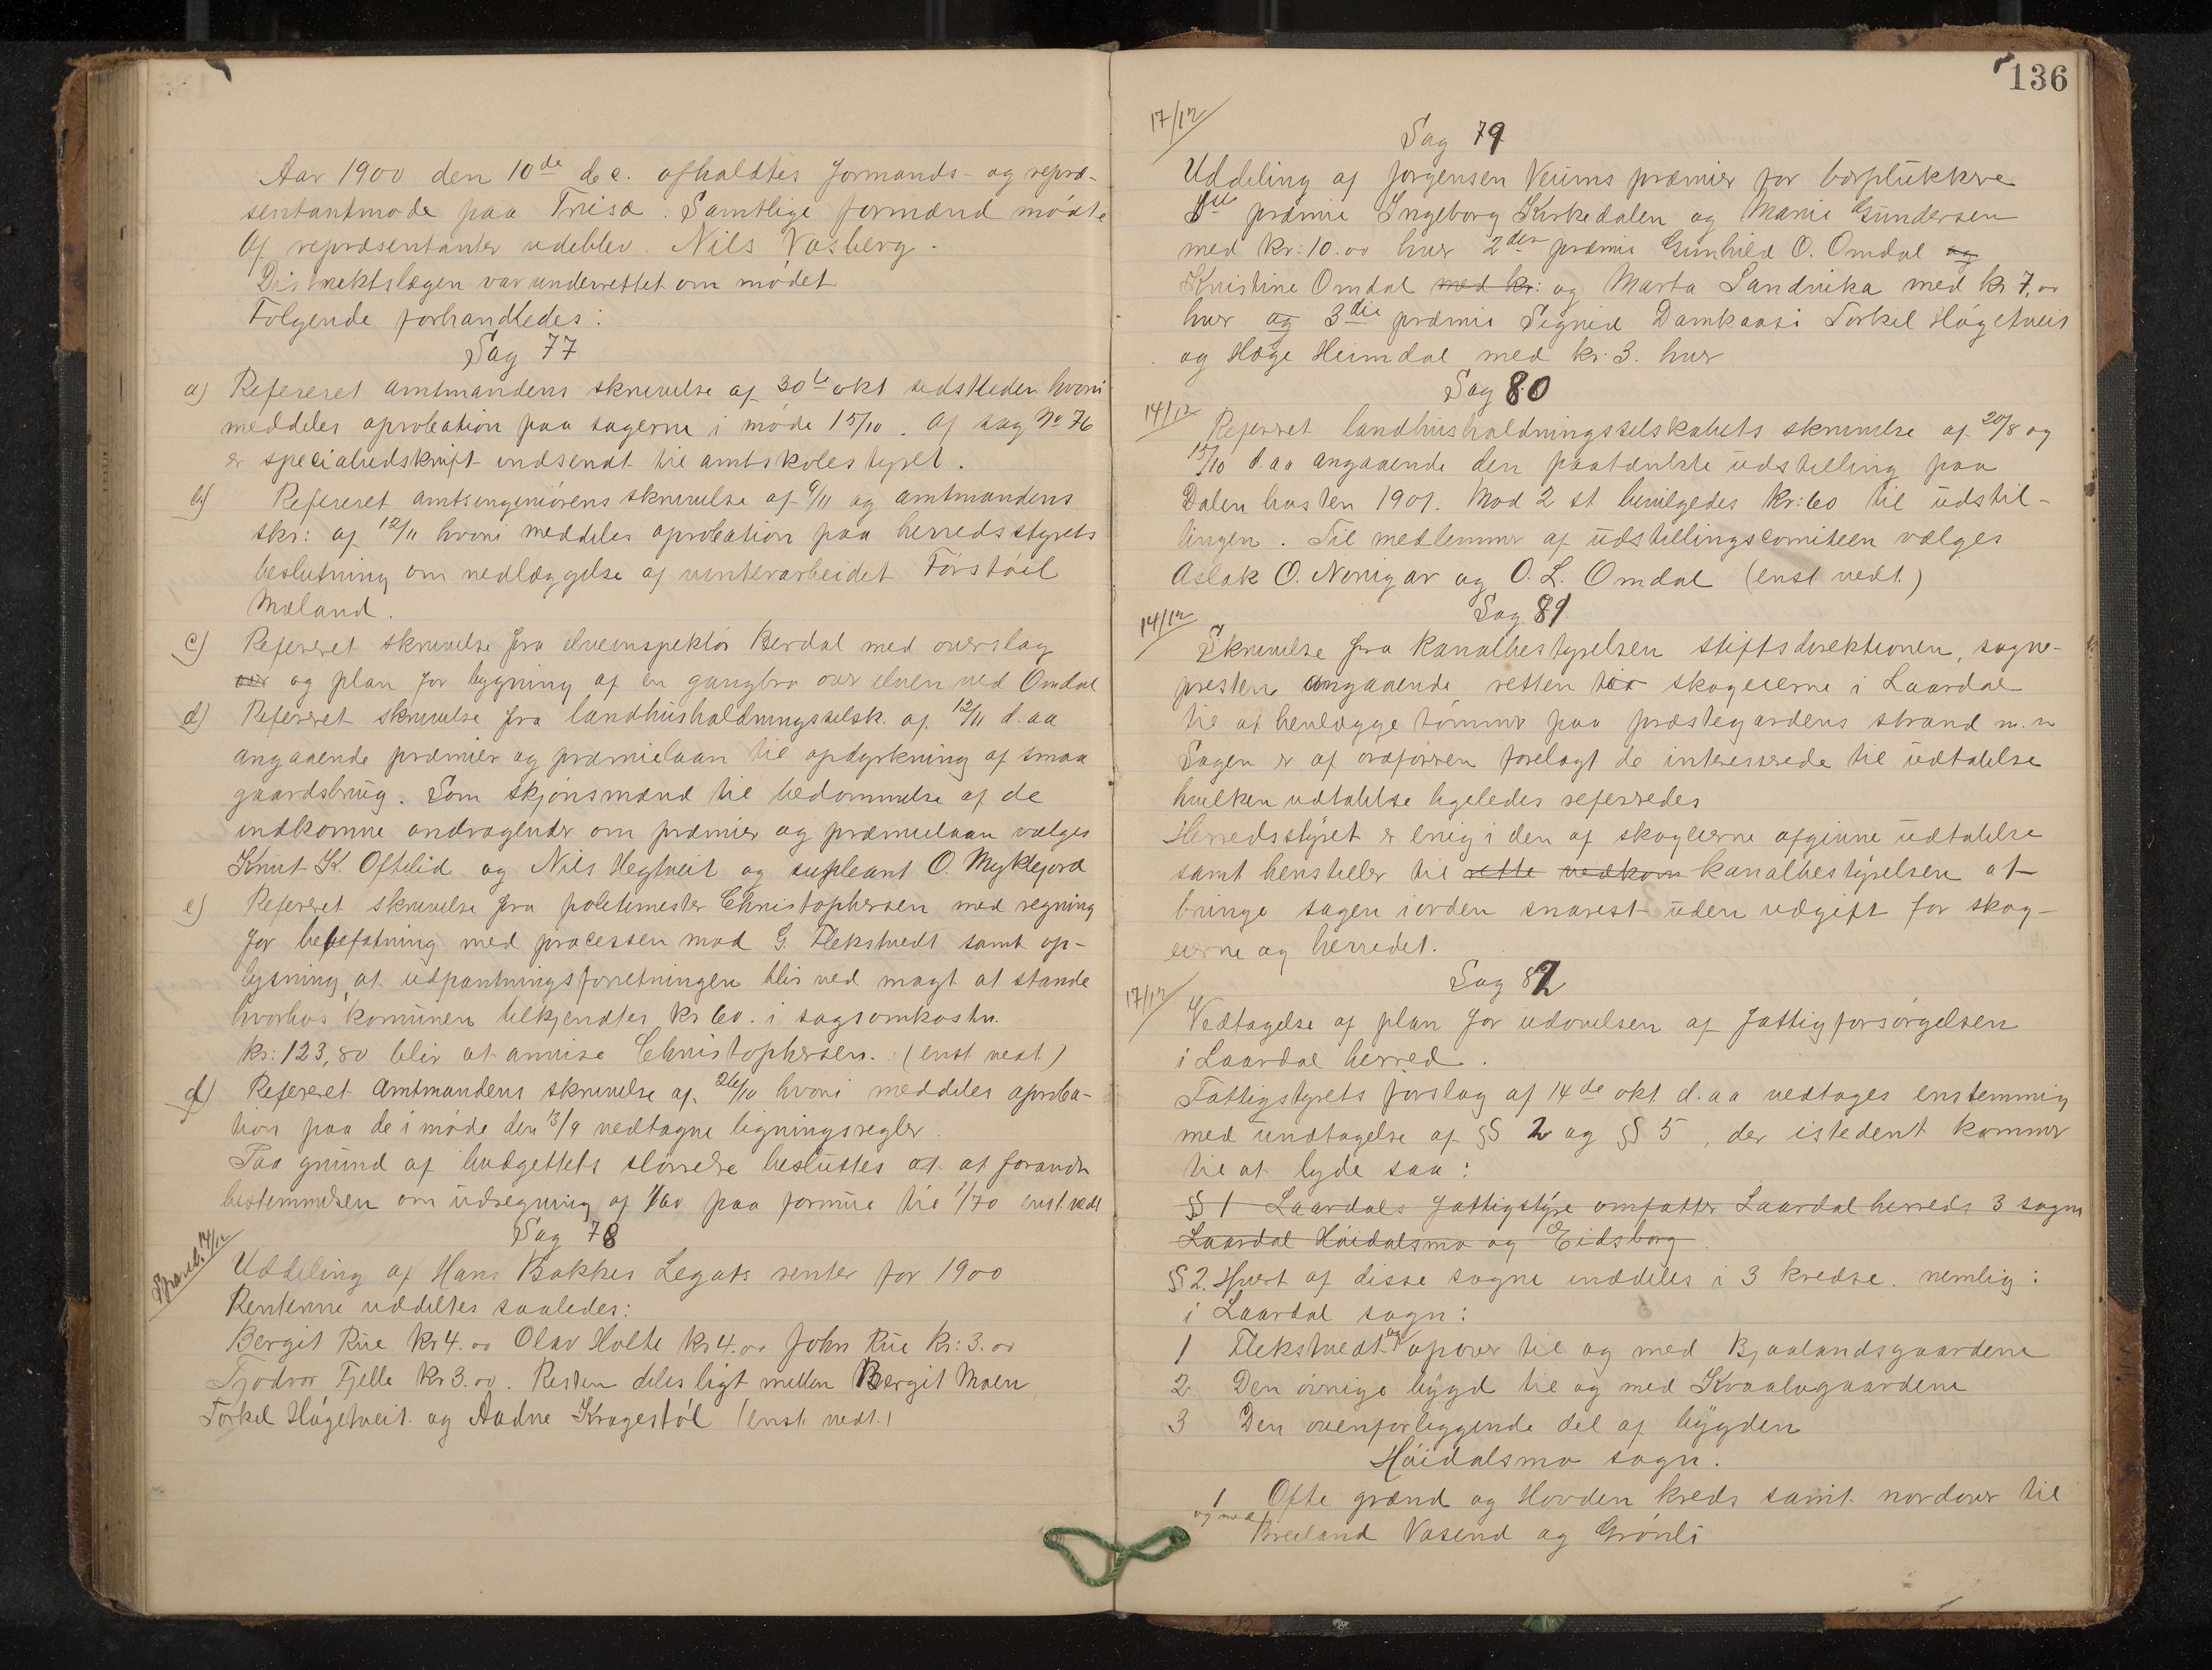 Aar 1900 den 10de dec. afholdtes formands- og repræ-
sentantmøde paa Triset. Samtlige formænd mødte
Af repræsentanter udeblev. Nils Vasberg.
Distriktslægen var underrettet om mødet
Følgende forhandledes:
Sag 77
a) Refereret amtmandens skrivelse af 30te okt sidstleden hvori
meddeles aprobation paa sagerne i møde 15/10. Af sag No 76
er specialudskrift indsendt til amtskolestyret.
b) Refereret amtsingeniørens skrivelse af 9/11 og amtmandens
skr: af 12/11 hvori meddeles aprobation paa herredsstyrets
beslutning om nedlæggelse af vinterarbeidet Førstøil
Mæland.
c) Refereret skrivelse fra elveinspektør Berdal med overslag
over og plan for bygning af en gangbro over elven ved Omdal
d) Refereret skrivelse fra landhusholdningsselsk. af 12/11 d.aa
angaaende præmier og præmielaan til opdyrkning af smaa
gaardsbrug. Som skjønsmænd til bedømmelse af de
indkomne andragender om præmier og præmielaan vælges
Knut K. Oftelid og Nils Hegtveit og supleant O. Myklejord
e) Refereret skrivelse fra politimester Christophersen med regning
for befatning med processen mod G. Flekstvedt samt op-
lysning, at udpantningsforretningen blir ved magt at stande
hvorhos komunen tilkjendtes kr 60. i sagsomkostn.
kr: 123,80 blir at anvise Christophersen. (enst vedt)
f) Refereret Amtmandens skrivelse af 26/10 hvori meddeles aproba-
tion paa de i møde den 13/9 vedtagne ligningsregler.
Paa grund af budgettets størrelse besluttes at at forandr
bestemmelsen om udregning af 1/60 paa formue til 1/70 enst. vedt
Sag 78
Spareb. 14/12
Uddeling af Hans Bakkes Legats renter for 1900
Renterne uddeltes saaledes:
Bergit Rue kr 4.00 Olav Holte kr 4.00 John Rue kr: 3.00
Tjodvor Fjelle kr 3.00. Resten deles ligt mellem Bergit Moen
Torkel Høgetveit og Aadne Kragestøl (enst. vedt.)
136
17/12
Sag 79
Uddeling af Jørgensen Veums præmier for bærplukkere
1ste præmie Ingeborg Kirkedalen og Marie Gundersen
med kr: 10.00 hver 2den præmie Gunhild O. Omdal og
Kristine Omdal med kr: og Marta Sandvika med kr 7,00
hver og 3die præmie Signid Damkaasi Torkel Høgetveit
og Hæge Heimdal med kr. 3. hver
Sag 80
14/12
Refereret landhusholdningsselskabets skrivelse af 20/8 og
15/10 d.aa angaaende den paatænkte udstilling paa
Dalen høsten 1901. Mod 2 st bevilgedes kr: 60 til udstil-
lingen. Til medlemmer af udstillingscomiteen vælges
Aslak O. Norigar og O. L. Omdal (enst vedt.)
Sag 81
14/12
Skrivelse fra kanalbestyrelsen stiftsdirektionen, sogne-
presten angaaende retten for skogeierne i Laardal
til at henlægge tømmer paa præstegardens strand m.m
Sagen er af ordføreren forelagt de interesserede til udtalelse
hvilken udtalelse ligeledes refereredes
Herredsstyret er enig i den af skogeierne afgivne udtalelse
samt henstiller til rette vedkom kanalbestyrelsen at
bringe sagen i orden snarest uden udgift for skog-
eierne og herredet.
Sag 82
17/12
Vedtagelse af plan for udøvelsen af fattigforsørgelsen
i Laardal herred.
Fattigstyrets forslag af 14de okt d.aa vedtages enstemmig
med undtagelse af §§ 2 og §§ 5, der istedent kommer
til at lyde saa:
§ 1 Laardals fattigstyre omfatter Laardal herreds 3 sogn
Laardal Høidalsmo og Eidsborg
§ 2. Hvert af disse sogne inddeles i 3 kredse. nemlig:
i Laardal sogn:
1 Flekstvedt og opover til og med Bjaalandsgaardene
2. Den øvrige bygd til og med Kvaalogaardene
3 Den ovenforliggende del af bygden
Høidalsmo sogn.
1 Ofte grænd og Hovden kreds samt nordover til
og med Breiland Vasend og Grønli